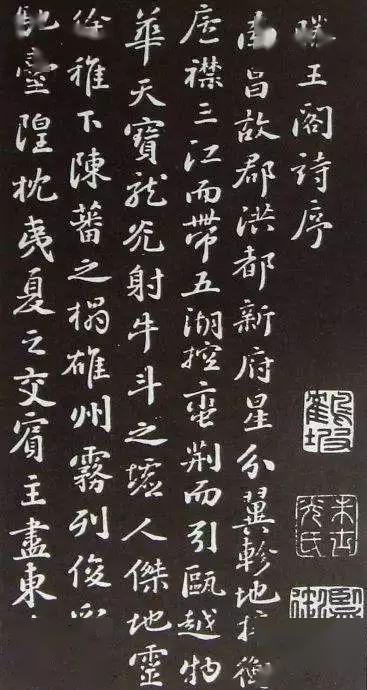 王閣詩序
南昌故郡洪都新府星分翼軫地
廬襟三江而帶五湖控蛮荊而引甌越物
華天寶龍光射牛斗之墟人傑地靈
徐稚下陳蕃之榻雄州霧列俊
臺隍枕夷夏之交賓主盡東